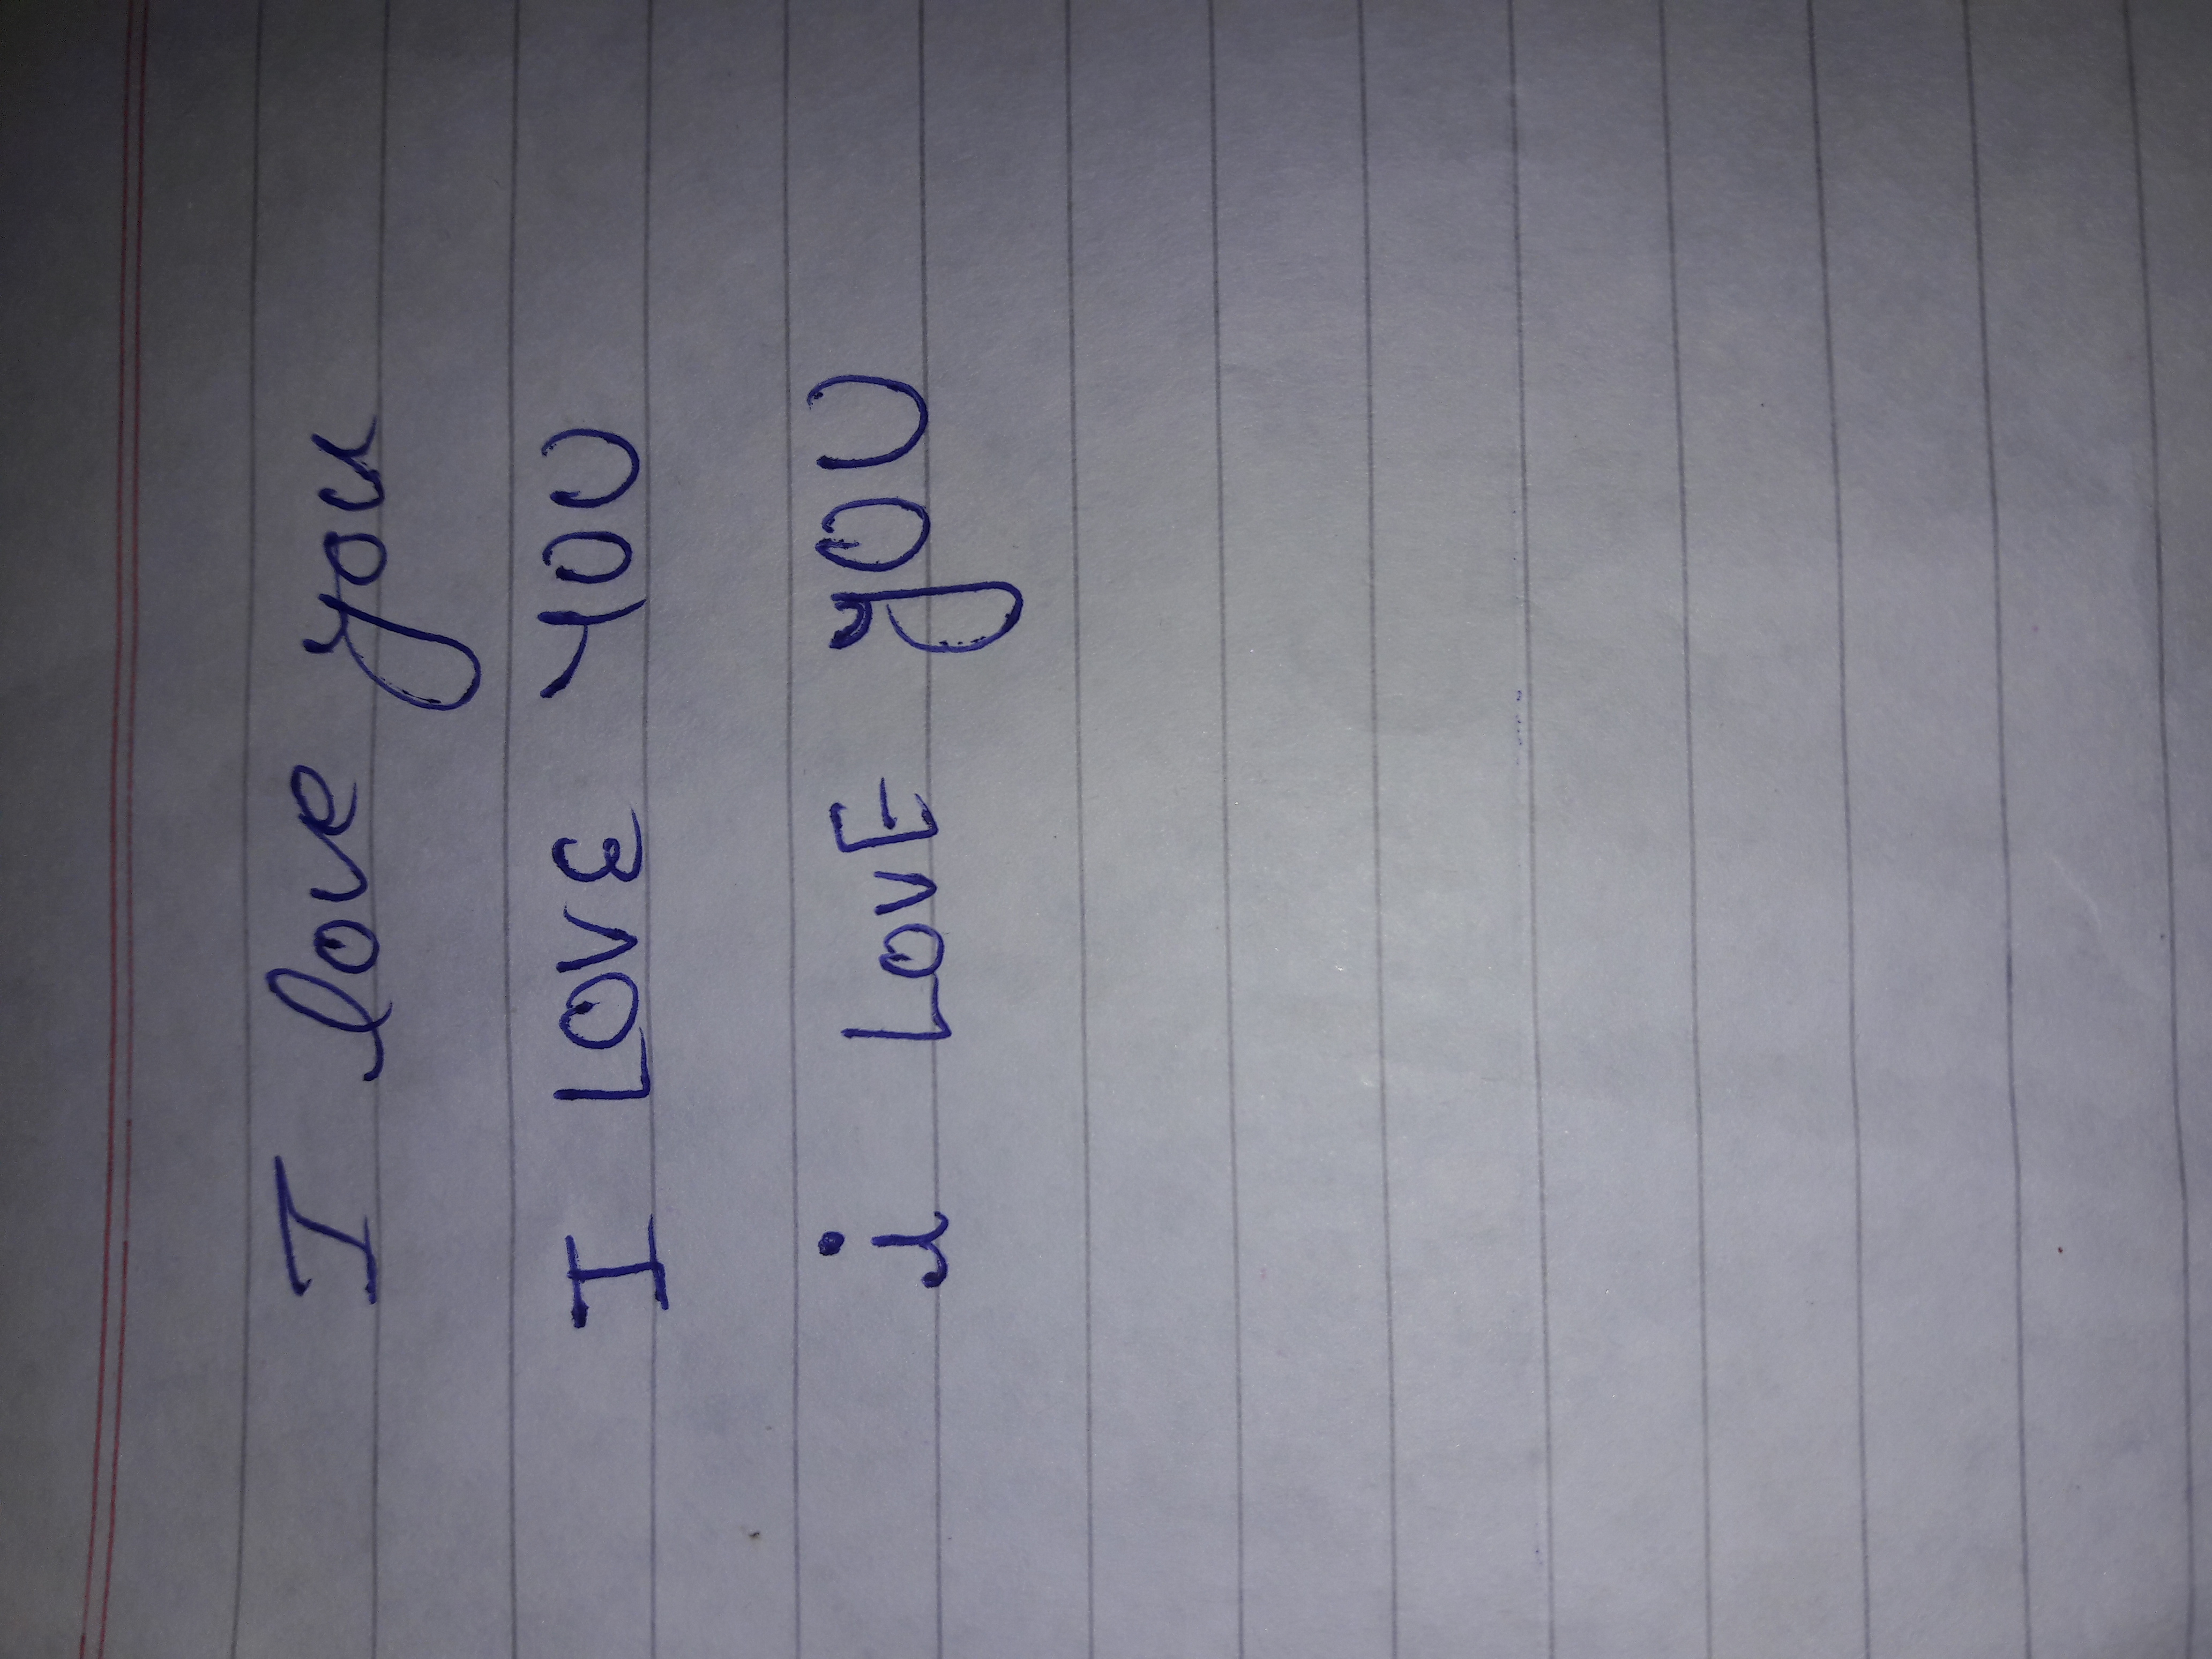 I love you
I LOVE YOU
i LOVE yOU